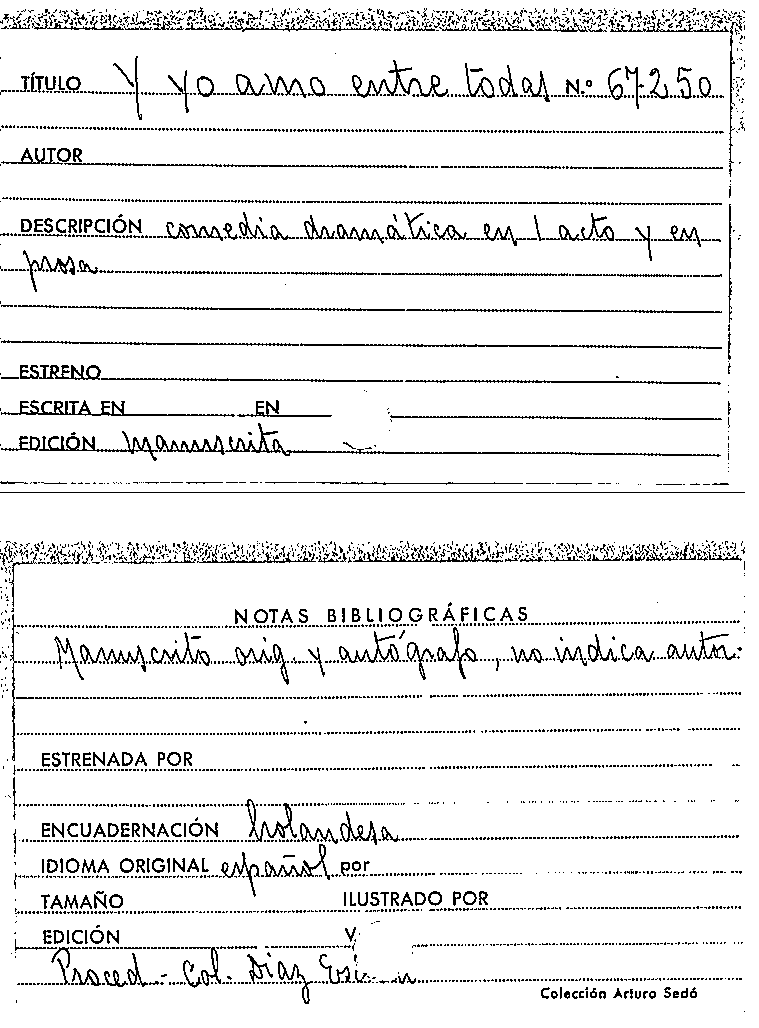 TÍTULO Y yo amo entre todas N.º 67.250
AUTOR
DESCRIPCIÓN comedia dramática en 1 acto y en
prosa
ESTRENO
ESCRITA EN EN
EDICIÓN Manuscrita
NOTAS BIBLIOGRÁFICAS
Manuscrito orig. y autógrafo, no indica autor.
ESTRENADA POR
ENCUADERNACIÓN holandesa
IDIOMA ORIGINAL español por
TAMAÑO ILUSTRADO POR
EDICIÓN Y
Proced.- Col. Diaz
Colección Arturo Sedó